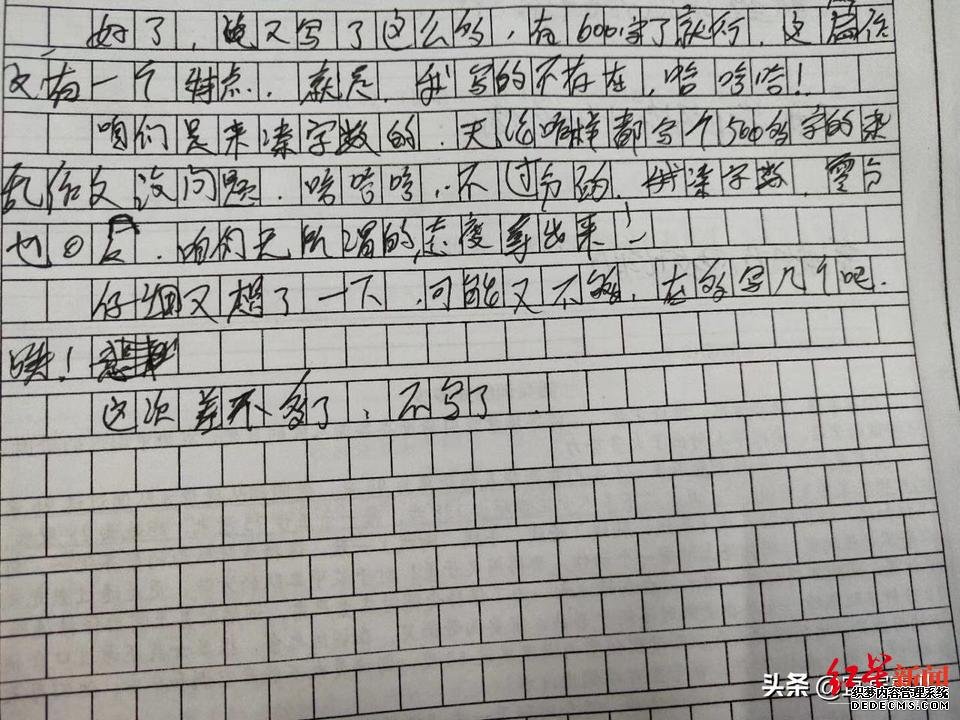 好了，又写了这么多，在600字了就行，这篇作
文有一个特点，就是，我写的不存在，哈哈哈！
咱们是来凑字数的，无论咋样都写个500多字的杂
乱作文没问题，哈哈哈，不过分的，凑字数，零分
也，咱们无所谓的态度拿出来！
仔细又想了一下，可能又不够，在多写几个吧
唉！
这次差不多了，不写了
红星新闻
头条 @
织梦内容管理系统
DEDECMS.COM